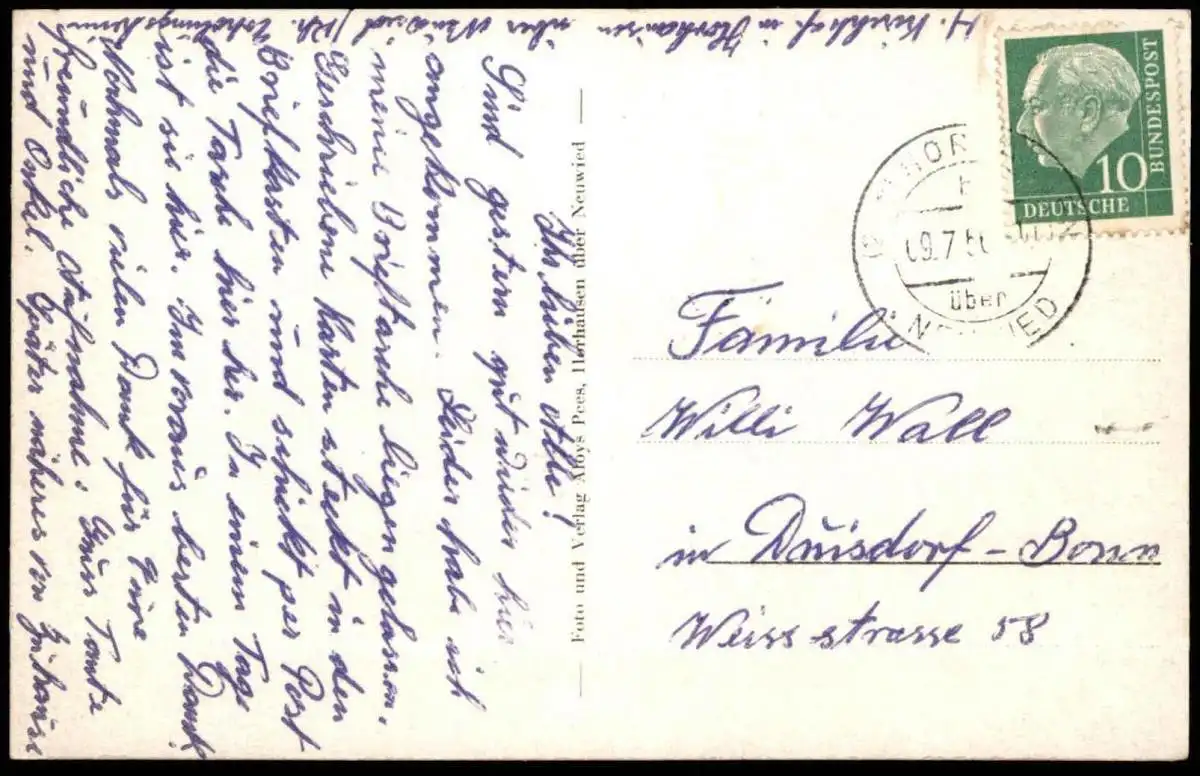 H. Kirchhof in Horhausen über Neuwied / Rh. Erholungsheim
Ihr lieben Alle!
Sind gestern gut wieder hier
angekommen. Leider habe ich
meine Brieftasche liegen gelassen.
Geschriebene Karten steckt in den
Briefkasten und schickt per Post
die Tasche hier her. In einem Tage
ist sie hier. Im voraus besten Dank!
Nochmals vielen Dank für Eure
freundliche Aufnahme; Gruss Tante
und Onkel. Später näheres von Zuhause
Foto und Verlag Aloys Pees, Horhausen über Neuwied
10
BUNDESPOST
DEUTSCHE
HOR
09.7.5
über
NEUWIED
Familie
Willi Wall
in Duisdorf-Bonn
Weissstrasse 58